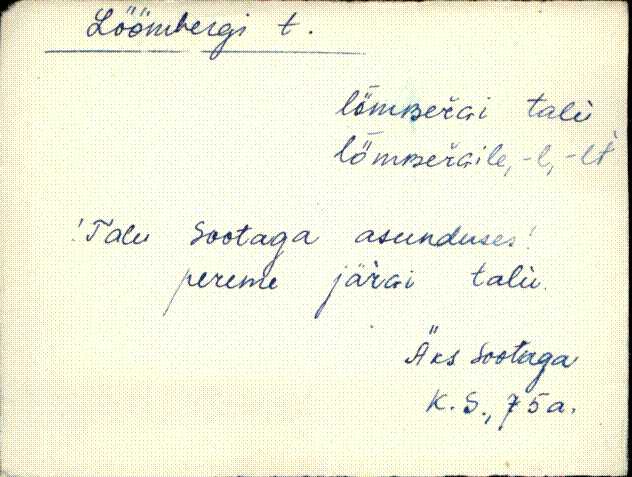 Löömbergi t.
lȫmʙeřɢi talù
lȫmʙeřɢile, -l, -lt
! Talu Sootaga asunduses!
pereme järɢi talù.
Äks Sootaga
K. S., 75a.